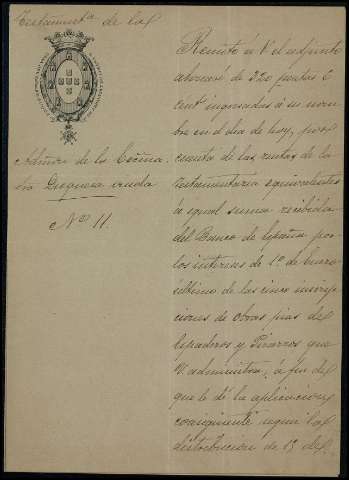 Testament.ª de la
Admora. de la Cocina
Duquesa viuda
Nº 11.
Remito á V. el adjunto
abonaré de 320 pesetas 6
cents. ingresadas á su nom-
bre en el dia de hoy, por
cuenta de las rentas de la
testamentaria equivalentes
á igual suma recibida
del Banco de España por
los intereses de 1º. de Enero
último de las cinco inscrip-
ciones de obras pias de
Espaderos y Pizarros que
V. administra, á fin de
que le dé la aplicacion
consiguiente segun la
distribucion de 15 de